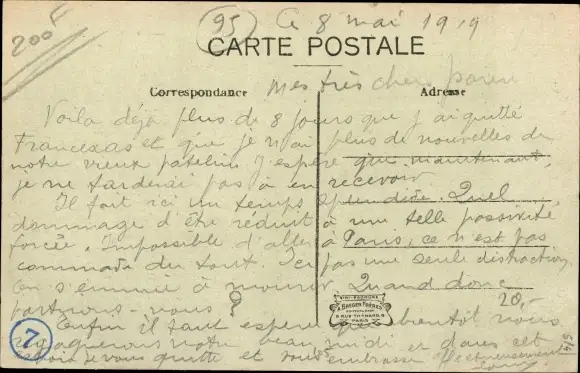 200F
95
Ce 8 mai 1919
CARTE POSTALE
Correspondance
Adresse
Mes très chers paren
Voila déja plus de 8 jours que j'ai quitté
Francescas et que je n'ai plus de nouvelles de
notre vieux patelin J'espère que maintenant,
je ne tarderai pas à en recevoir
Il fait ici un temps splendide. Quel
dommage d'être réduit à une telle passivité
forcée. Impossible d'aller à Paris, ce n'est pas
commode du tout. Ici pas une seule distraction
On s'ennuie à mourir Quand donc
partirons-nous?
Enfin il faut espérer que bientôt nous
regagnerons notre beau midi et dans cet
espoir je vous quitte et vous embrasse affectueusement
20,-
7
PARIS